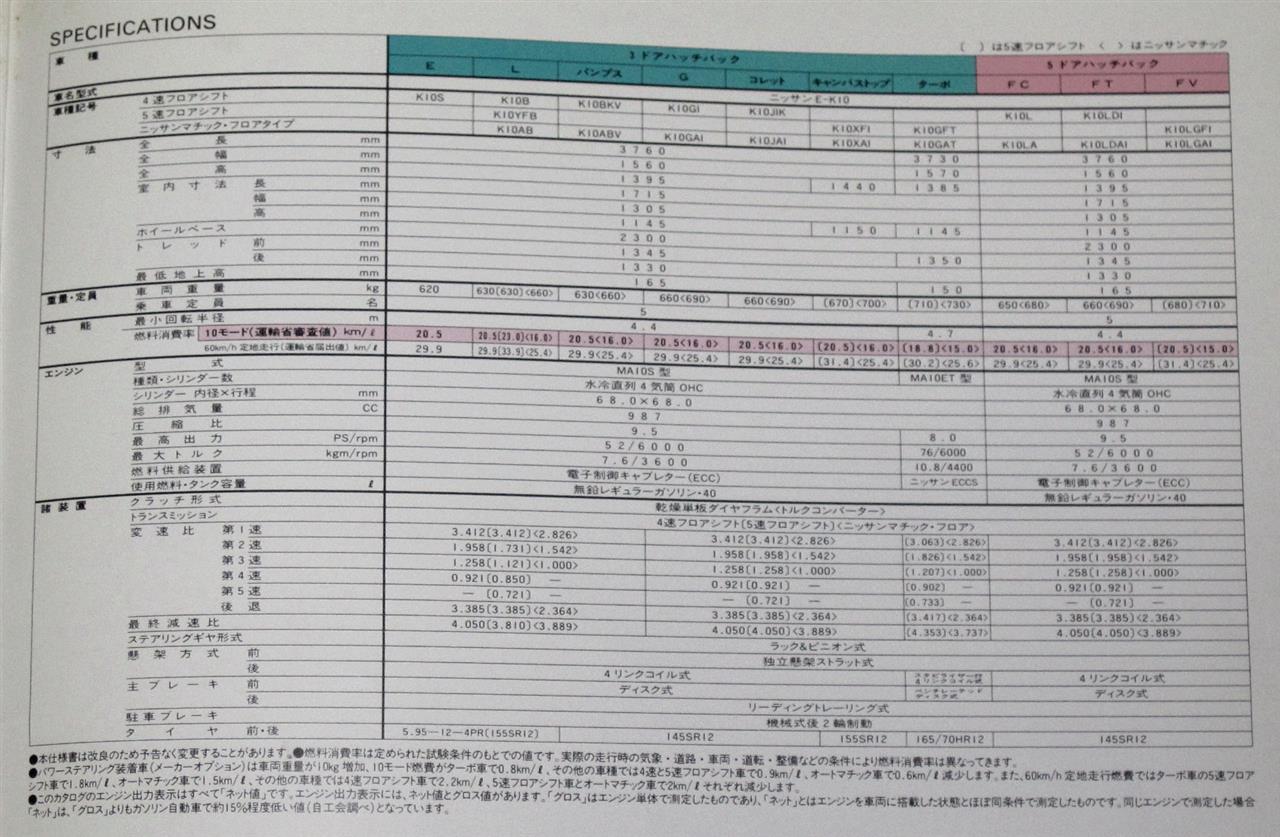 SPECIFICATIONS
( )は5速フロアシフト 〈 〉はニッサンマチック
車種 3ドアハッチバック 5ドアハッチバック
E L パンプス G コレット キャンバストップ ターボ FC FT FV
車名型式 ニッサンE-K10
車種記号 4速フロアシフト K10S K10B K10BKV K10GI K10JIK K10L K10LDI
5速フロアシフト K10YFB K10XFI K10GFT K10LGFI
ニッサンマチック・フロアタイプ K10AB K10ABV K10GAI K10JAI K10XAI K10GAT K10LA K10LDAI K10LGAI
寸法 全長 mm 3760 3730 3760
全幅 mm 1560 1570 1560
全高 mm 1395 1440 1385 1395
室内寸法 長 mm 1715 1715
幅 mm 1305 1305
高 mm 1145 1150 1145 1145
ホイールベース mm 2300 2300
トレッド 前 mm 1345 1350 1345
後 mm 1330 1330
最低地上高 mm 165 150 165
重量・定員 車両重量 kg 620 630(630)〈660〉 630〈660〉 660〈690〉 660〈690〉 (670)〈700〉 (710)〈730〉 650〈680〉 660〈690〉 (680)〈710〉
乗車定員 名 5 5
性能 最小回転半径 m 4.4 4.7 4.4
燃料消費率 10モード(運輸省審査値) km/ℓ 20.5 20.5(23.0)〈16.0〉 20.5〈16.0〉 20.5〈16.0〉 20.5〈16.0〉 (20.5)〈16.0〉 (18.8)〈15.0〉 20.5〈16.0〉 20.5〈16.0〉 (20.5)〈15.0〉
60km/h 定地走行(運輸省届出値) km/ℓ 29.9 29.9(33.9)〈25.4〉 29.9〈25.4〉 29.9〈25.4〉 29.9〈25.4〉 (31.4)〈25.4〉 (30.2)〈25.6〉 29.9〈25.4〉 29.9〈25.4〉 (31.4)〈25.4〉
エンジン 型式 MA10S型 MA10ET型 MA10S型
種類・シリンダー数 水冷直列4気筒OHC 水冷直列4気筒OHC
シリンダー 内径×行程 mm 68.0×68.0 68.0×68.0
総排気量 CC 987 987
圧縮比 9.5 8.0 9.5
最高出力 PS/rpm 52/6000 76/6000 52/6000
最大トルク kgm/rpm 7.6/3600 10.8/4400 7.6/3600
燃料供給装置 電子制御キャブレター(ECC) ニッサンECCS 電子制御キャブレター(ECC)
使用燃料・タンク容量 ℓ 無鉛レギュラーガソリン・40 無鉛レギュラーガソリン・40
諸装置 クラッチ形式 乾燥単板ダイヤフラム〈トルクコンバーター〉
トランスミッション 4速フロアシフト(5速フロアシフト)〈ニッサンマチック・フロア〉
変速比 第1速 3.412(3.412)〈2.826〉 3.412(3.412)〈2.826〉 (3.063)〈2.826〉 3.412(3.412)〈2.826〉
第2速 1.958(1.731)〈1.542〉 1.958(1.958)〈1.542〉 (1.826)〈1.542〉 1.958(1.958)〈1.542〉
第3速 1.258(1.121)〈1.000〉 1.258(1.258)〈1.000〉 (1.207)〈1.000〉 1.258(1.258)〈1.000〉
第4速 0.921(0.850) — 0.921(0.921) — (0.902) — 0.921(0.921) —
第5速 — (0.721) — — (0.721) — (0.733) — — (0.721) —
後退 3.385(3.385)〈2.364〉 3.385(3.385)〈2.364〉 (3.417)〈2.364〉 3.385(3.385)〈2.364〉
最終減速比 4.050(3.810)〈3.889〉 4.050(4.050)〈3.889〉 (4.353)〈3.737〉 4.050(4.050)〈3.889〉
ステアリングギヤ形式 ラック&ピニオン式
懸架方式 前 独立懸架ストラット式
後 4リンクコイル式 スタビライザー付4リンクコイル式 4リンクコイル式
主ブレーキ 前 ディスク式 ベンチレーテッドディスク式 ディスク式
後 リーディングトレーリング式
駐車ブレーキ 機械式後2輪制動
タイヤ 前・後 5.95-12-4PR(155SR12) 145SR12 155SR12 165/70HR12 145SR12
●本仕様書は改良のため予告なく変更することがあります。●燃料消費率は定められた試験条件のもとでの値です。実際の走行時の気象・道路・車両・運転・整備などの条件により燃料消費率は異なってきます。
●パワーステアリング装着車(メーカーオプション)は車両重量が10kg増加、10モード燃費がターボ車で0.8km/ℓ、その他の車種では4速と5速フロアシフト車で0.9km/ℓ、オートマチック車で0.6km/ℓ減少します。また、60km/h定地走行燃費ではターボ車の5速フロア
シフト車で1.8km/ℓ、オートマチック車で1.5km/ℓ、その他の車種では4速フロアシフト車で2.2km/ℓ、5速フロアシフト車とオートマチック車で2km/ℓそれぞれ減少します。
●このカタログのエンジン出力表示はすべて「ネット値」です。エンジン出力表示には、ネット値とグロス値があります。「グロス」はエンジン単体で測定したものであり、「ネット」とはエンジンを車両に搭載した状態とほぼ同条件で測定したものです。同じエンジンで測定した場合
「ネット」は、「グロス」よりもガソリン自動車で約15%程度低い値(自工会調べ)となっています。